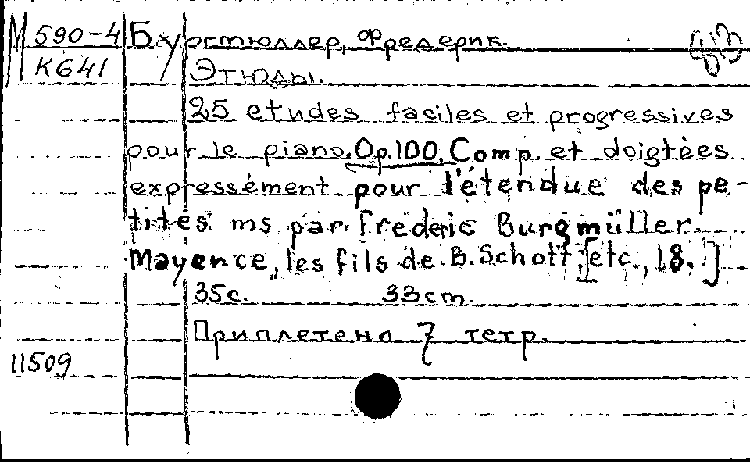 М 590-4 Бургмюллер, Фредерик.
К641 Этюды.
25 etudes faciles et progressives
pour le piano. Op.100. Comp. et doigtées
expressément pour l'étendue des pe-
tites ms par Frederic Burgmüller.
Mayence, les fils de B.Schott [etc., 18. ]
35с. 33cm.
Приплетено 7 тетр.
11509